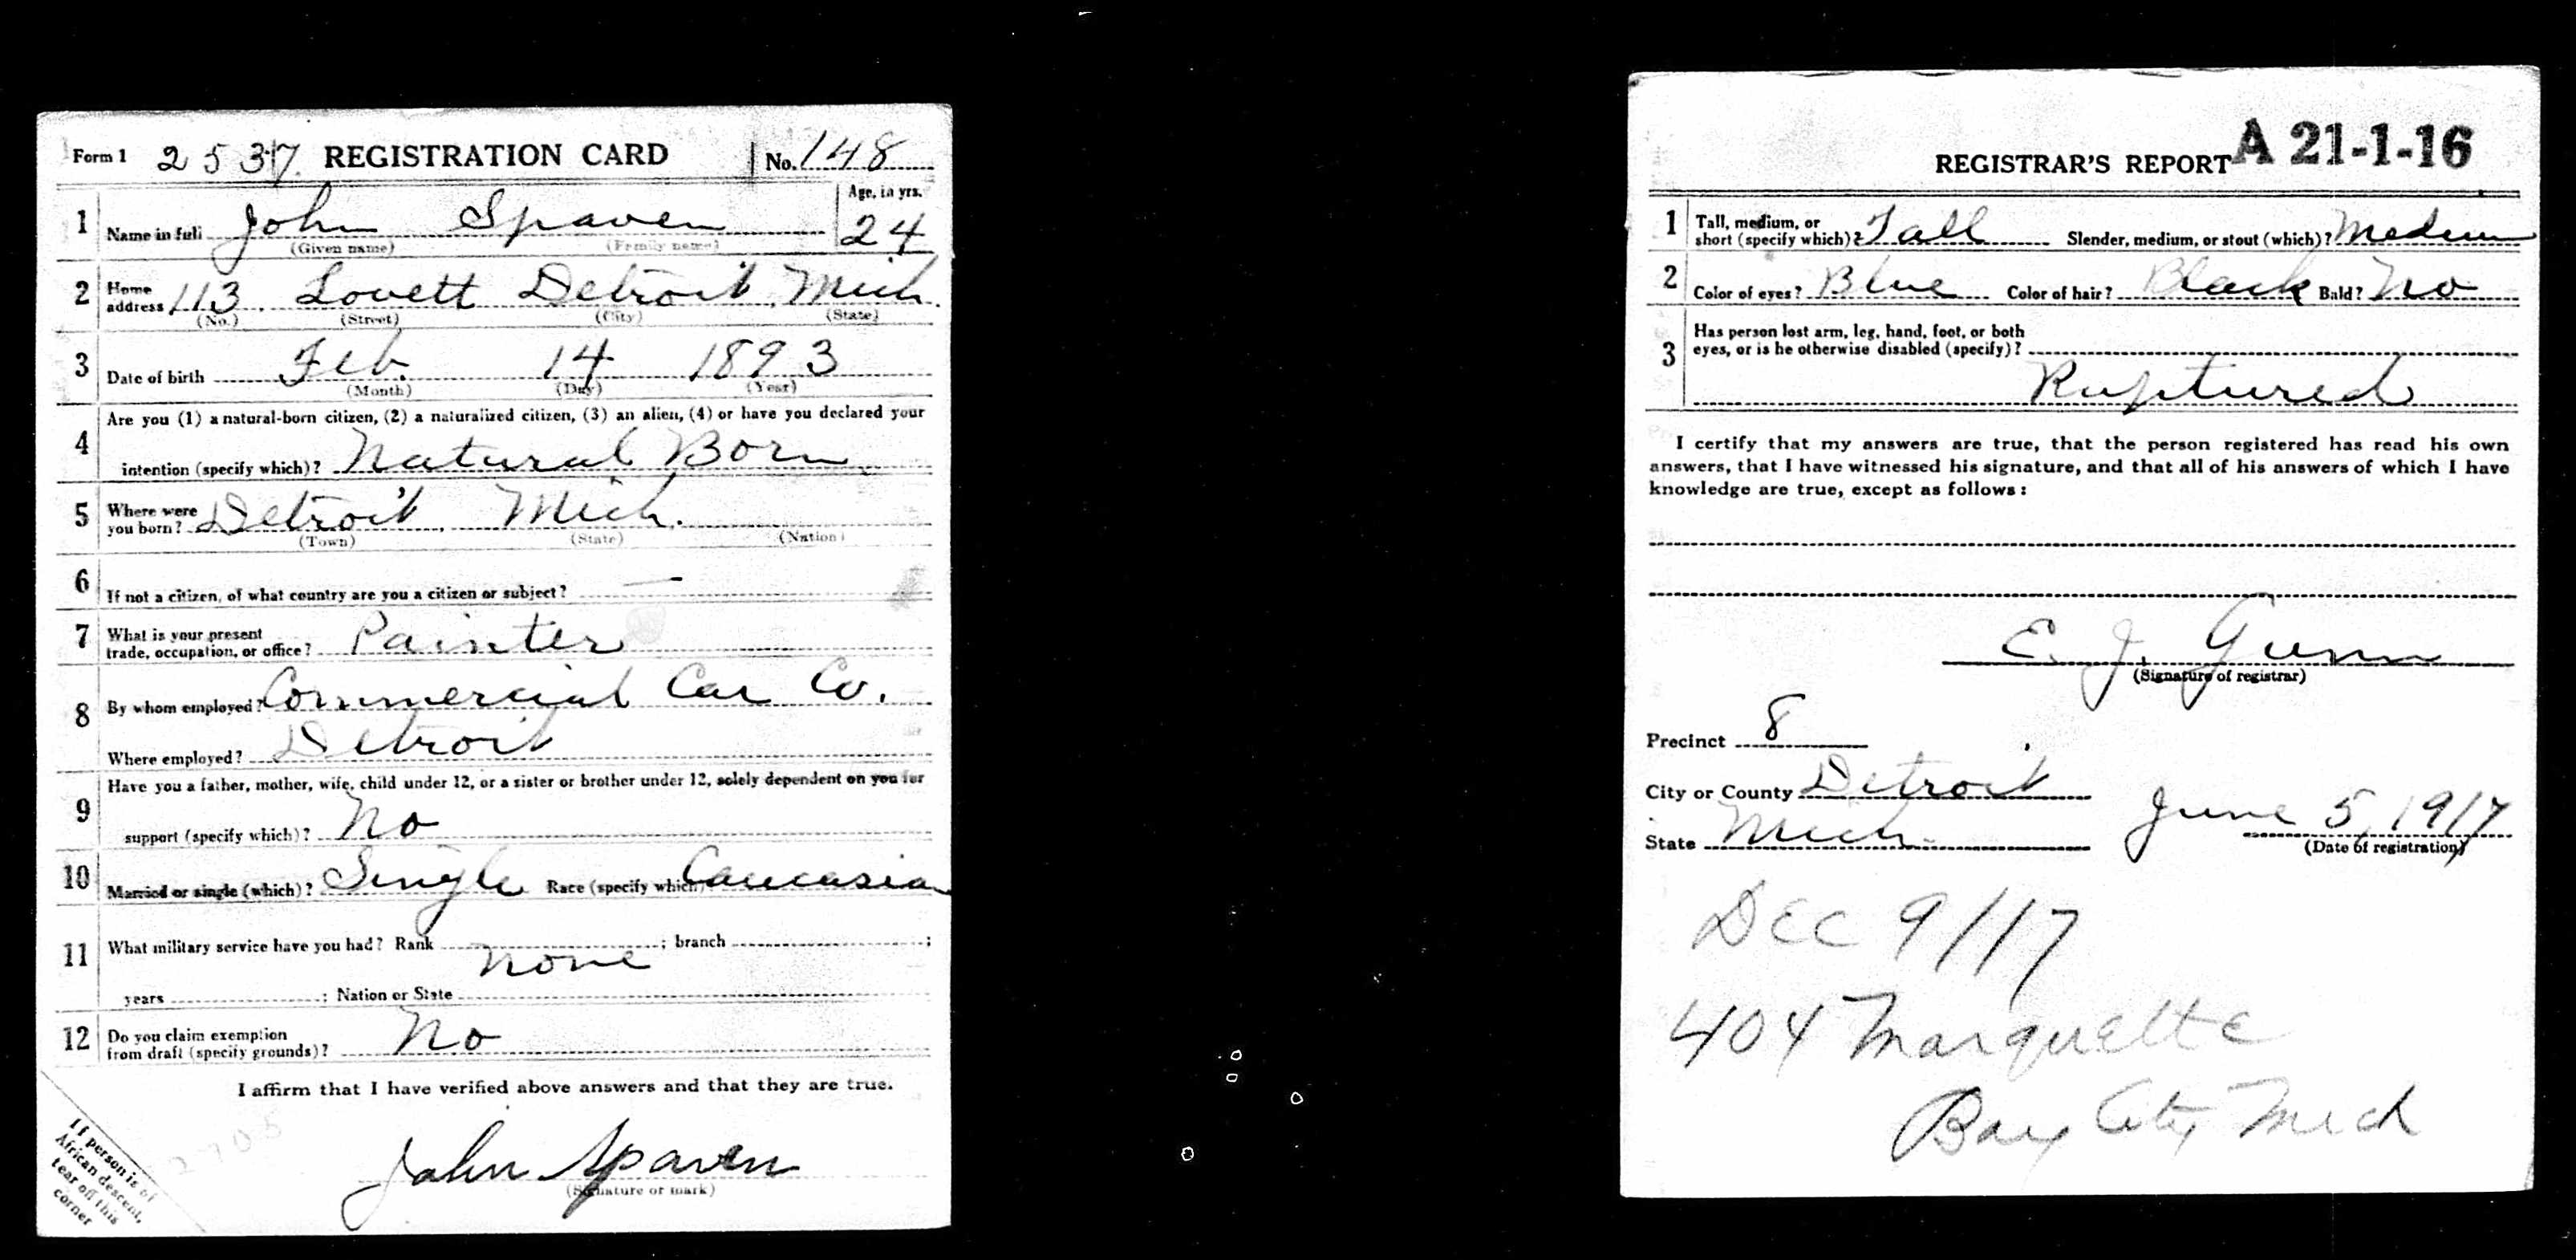 Form 1 2537 REGISTRATION CARD No. 148
1 Name in full John Spaven Age, in yrs. 24
(Given name) (Family name)
2 Home address 113 Lovett Detroit Mich.
(No.) (Street) (City) (State)
3 Date of birth Feb. 14 1893
(Month) (Day) (Year)
4 Are you (1) a natural-born citizen, (2) a naturalized citizen, (3) an alien, (4) or have you declared your
intention (specify which)? Natural Born
5 Where were you born? Detroit, Mich.
(Town) (State) (Nation)
6 If not a citizen, of what country are you a citizen or subject? —
7 What is your present trade, occupation, or office? Painter
8 By whom employed? Commercial Car Co.
Where employed? Detroit
9 Have you a father, mother, wife, child under 12, or a sister or brother under 12, solely dependent on you for
support (specify which)? No
10 Married or single (which)? Single Race (specify which)? Caucasian
11 What military service have you had? Rank ; branch ;
None
years ; Nation or State
12 Do you claim exemption from draft (specify grounds)? No
I affirm that I have verified above answers and that they are true.
2705
John Spaven
(Signature or mark)
If person is of
African descent,
tear off this
corner
REGISTRAR'S REPORT A 21-1-16
1 Tall, medium, or short (specify which)? Tall Slender, medium, or stout (which)? Medium
2 Color of eyes? Blue Color of hair? Black Bald? No
3 Has person lost arm, leg, hand, foot, or both
eyes, or is he otherwise disabled (specify)?
Ruptured
I certify that my answers are true, that the person registered has read his own
answers, that I have witnessed his signature, and that all of his answers of which I have
knowledge are true, except as follows:
E. J. Gunn
(Signature of registrar)
Precinct 8
City or County Detroit
State Mich. June 5, 1917
(Date of registration)
DEC 9/17
404 Marquette
Bay City Mich